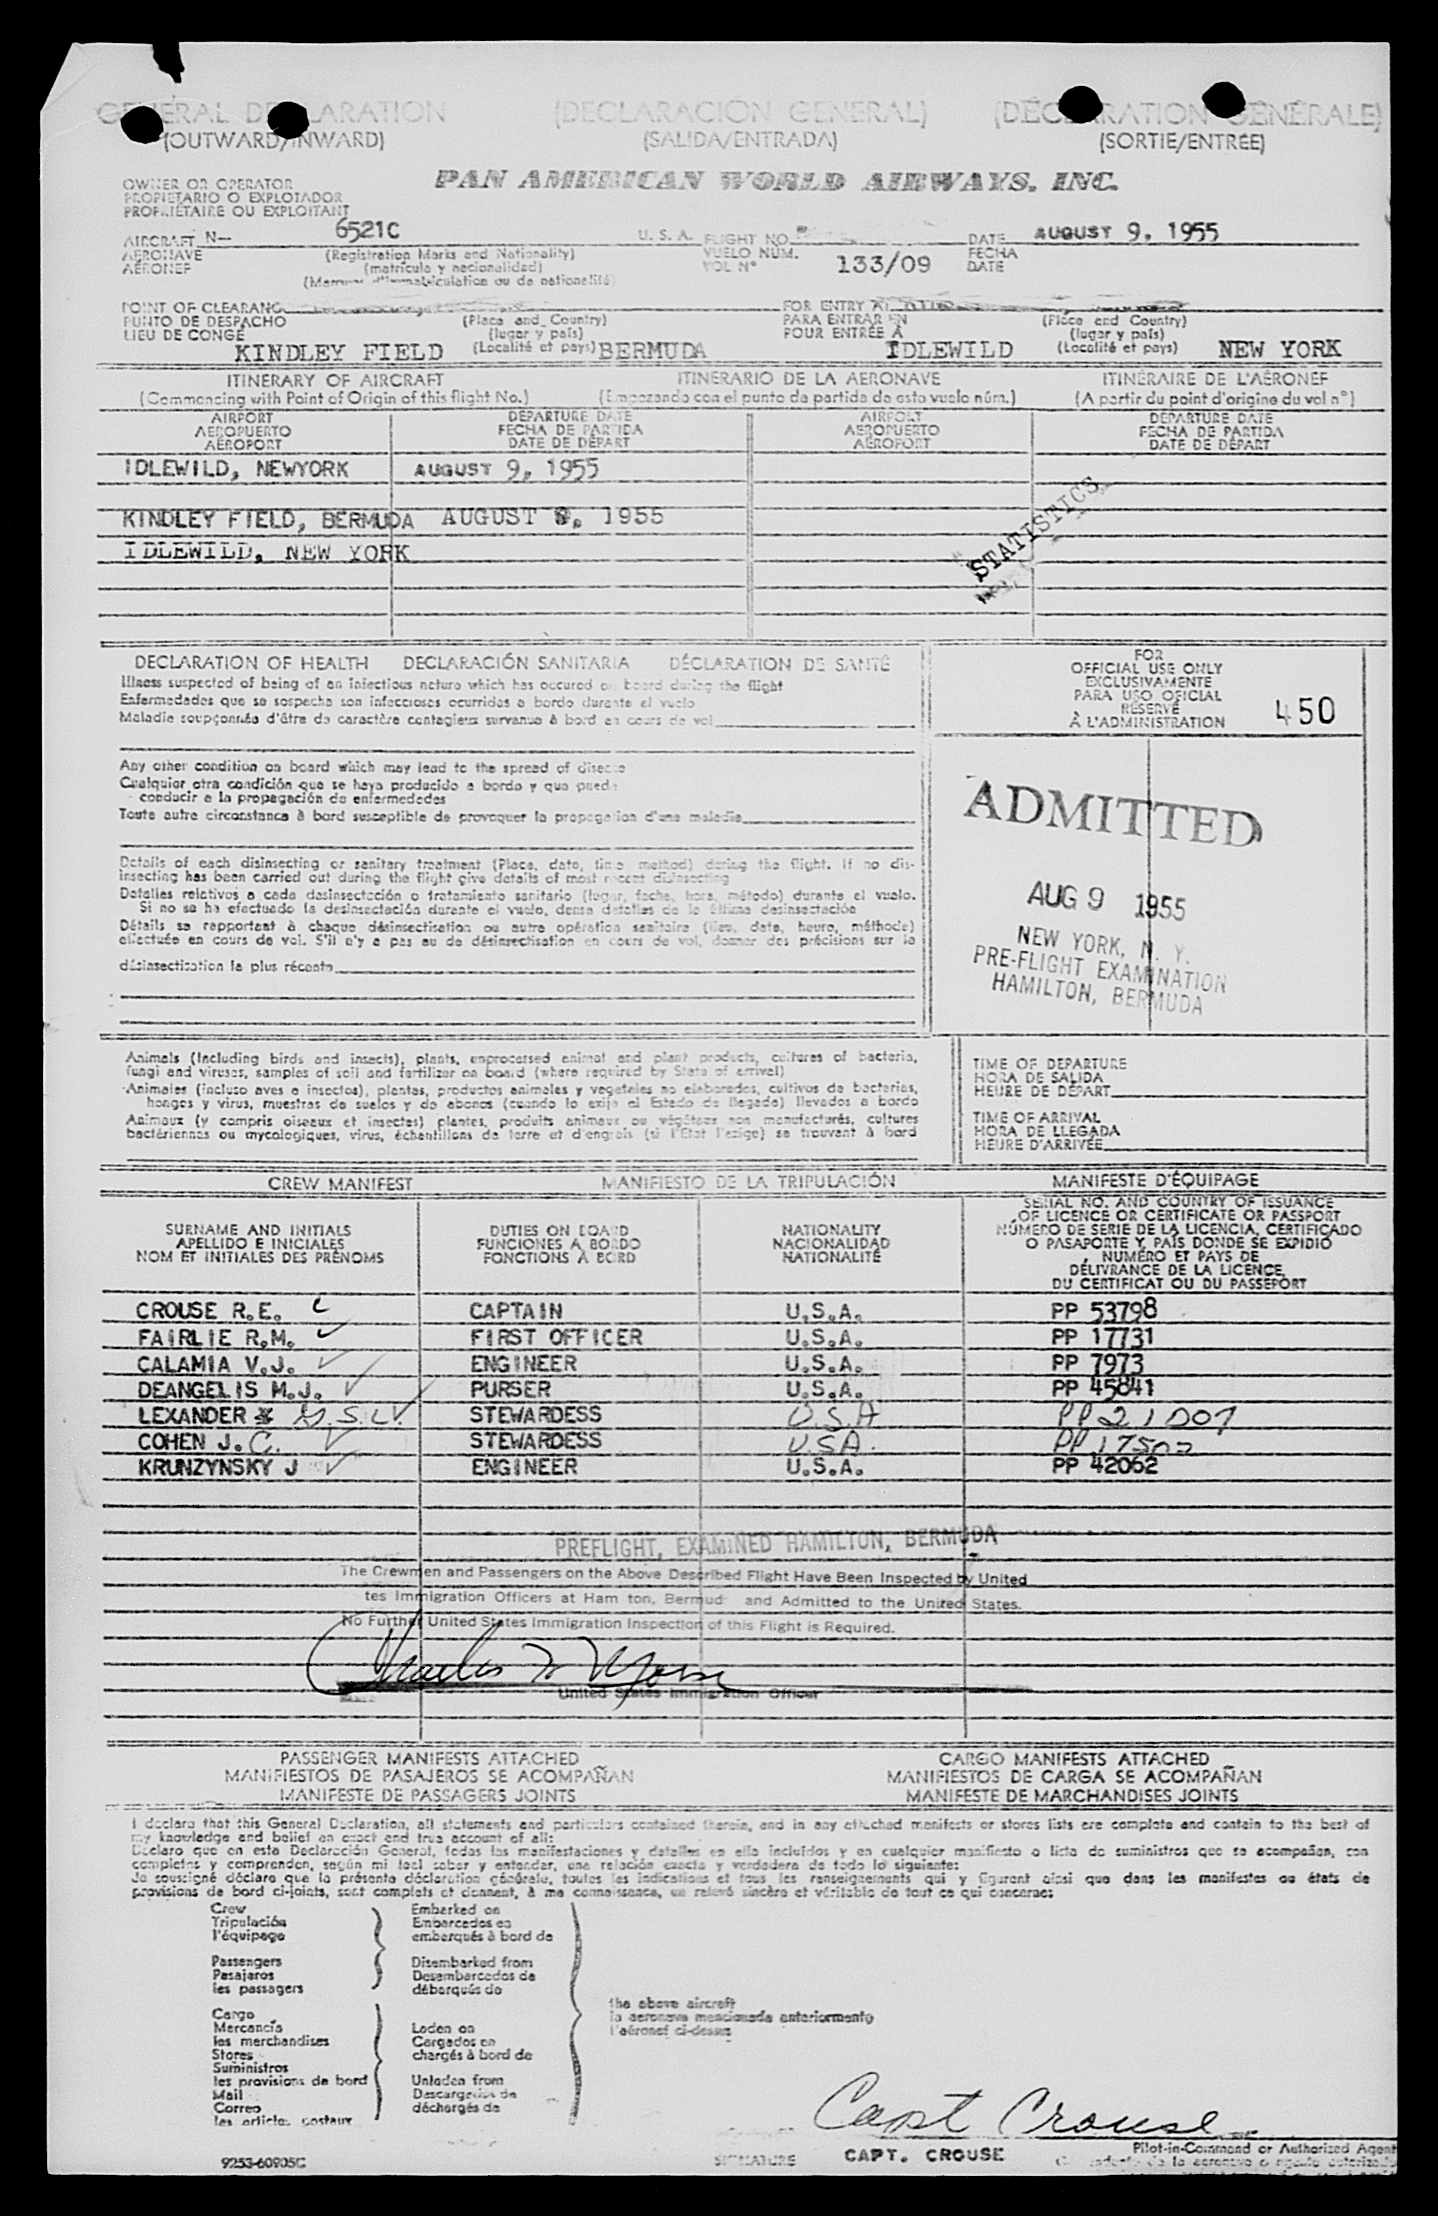 GENERAL DECLARATION (DECLARACIÓN GENERAL) (DÉCLARATION GÉNÉRALE)
(OUTWARD/INWARD) (SALIDA/ENTRADA) (SORTIE/ENTRÉE)
OWNER OR OPERATOR
PROPIETARIO O EXPLOTADOR
PROPRIÉTAIRE OU EXPLOITANT
PAN AMERICAN WORLD AIRWAYS, INC.
AIRCRAFT N— 6521C U. S. A. FLIGHT NO. DATE AUGUST 9, 1955
AERONAVE (Registration Marks and Nationality) VUELO NUM. 133/09 FECHA
AÉRONEF (matrícula y nacionalidad) VOL N° DATE
(Marques d'immatriculation ou de nationalité)
POINT OF CLEARANCE FOR ENTRY AT
PUNTO DE DESPACHO (Place and Country) PARA ENTRAR EN (Place and Country)
LIEU DE CONGÉ (lugar y país) POUR ENTRÉE À (lugar y país)
KINDLEY FIELD (Localité et pays) BERMUDA IDLEWILD (Localité et pays) NEW YORK
ITINERARY OF AIRCRAFT ITINERARIO DE LA AERONAVE ITINÉRAIRE DE L'AÉRONEF
(Commencing with Point of Origin of this flight No.) (Empezando con el punto de partida de esta vuelo núm.) (A partir du point d'origine du vol n°)
AIRPORT DEPARTURE DATE AIRPORT DEPARTURE DATE
AEROPUERTO FECHA DE PARTIDA AEROPUERTO FECHA DE PARTIDA
AÉROPORT DATE DE DÉPART AÉROPORT DATE DE DÉPART
IDLEWILD, NEWYORK AUGUST 9, 1955
KINDLEY FIELD, BERMUDA AUGUST 9, 1955
IDLEWILD, NEW YORK
STATISTICS
DECLARATION OF HEALTH DECLARACIÓN SANITARIA DÉCLARATION DE SANTÉ
Illness suspected of being of an infectious nature which has occured on board during the flight
Enfermedades que se sospecha son infecciosas ocurridas a bordo durante el vuelo
Maladie soupçonnée d'être de caractère contagieux survenue à bord en cours de vol
FOR
OFFICIAL USE ONLY
EXCLUSIVAMENTE
PARA USO OFICIAL
RÉSERVÉ
À L'ADMINISTRATION
450
Any other condition on board which may lead to the spread of disease
Cualquier otra condición que se haya producido a bordo y que puede
conducir a la propagación de enfermedades
Toute autre circonstance à bord susceptible de provoquer la propagation d'une maladie
ADMITTED
AUG 9 1955
NEW YORK, N. Y.
PRE-FLIGHT EXAMINATION
HAMILTON, BERMUDA
Details of each disinsecting or sanitary treatment (Place, date, time method) during the flight. If no dis-
insecting has been carried out during the flight give details of most recent disinsecting
Detalles relativos a cada desinsectación o tratamiento sanitario (lugar, fecha, hora, método) durante el vuelo.
Si no se ha efectuado la desinsectación durante el vuelo, dense detalles de la última desinsectación
Détails se rapportant à chaque désinsectisation ou autre opération sanitaire (lieu, date, heure, méthode)
effectuée en cours de vol. S'il n'y a pas eu de désinsectisation en cours de vol, donner des précisions sur la
désinsectisation la plus récente
Animals (Including birds and insects), plants, unprocessed animal and plant products, cultures of bacteria,
fungi and viruses, samples of soil and fertilizer on board (where required by State of arrival)
Animales (incluso aves e insectos), plantas, productos animales y vegetales no elaborados, cultivos de bacterias,
hongos y virus, muestras de suelos y de abonos (cuando lo exija el Estado de llegada) llevados a bordo
Animaux (y compris oiseaux et insectes) plantes, produits animaux ou végétaux non manufacturés, cultures
bactériennes ou mycologiques, virus, échantillons de terre et d'engrais (si l'État l'exige) se trouvant à bord
TIME OF DEPARTURE
HORA DE SALIDA
HEURE DE DÉPART
TIME OF ARRIVAL
HORA DE LLEGADA
HEURE D'ARRIVÉE
CREW MANIFEST MANIFIESTO DE LA TRIPULACIÓN MANIFESTE D'ÉQUIPAGE
SURNAME AND INITIALS
APELLIDO E INICIALES
NOM ET INITIALES DES PRÉNOMS
DUTIES ON BOARD
FUNCIONES A BORDO
FONCTIONS À BORD
NATIONALITY
NACIONALIDAD
NATIONALITÉ
SERIAL NO. AND COUNTRY OF ISSUANCE
OF LICENCE OR CERTIFICATE OR PASSPORT
NÚMERO DE SERIE DE LA LICENCIA, CERTIFICADO
O PASAPORTE Y PAÍS DONDE SE EXPIDIÓ
NUMÉRO ET PAYS DE
DÉLIVRANCE DE LA LICENCE,
DU CERTIFICAT OU DU PASSEPORT
CROUSE R.E. CAPTAIN U.S.A. PP 53798
FAIRLIE R.M. FIRST OFFICER U.S.A. PP 17731
CALAMIA V.J. ENGINEER U.S.A. PP 7973
DEANGELIS M.J. PURSER U.S.A. PP 45841
LEXANDER STEWARDESS U.S.A PP 21007
COHEN J.C. STEWARDESS U.S.A. PP 17502
KRUNZYNSKY J ENGINEER U.S.A. PP 42062
PREFLIGHT, EXAMINED HAMILTON, BERMUDA
The Crewmen and Passengers on the Above Described Flight Have Been Inspected by United
tes Immigration Officers at Ham ton, Bermud and Admitted to the United States.
No Further United States Immigration Inspection of this Flight is Required.
Charles
United States Immigration Officer
PASSENGER MANIFESTS ATTACHED CARGO MANIFESTS ATTACHED
MANIFIESTOS DE PASAJEROS SE ACOMPAÑAN MANIFIESTOS DE CARGA SE ACOMPAÑAN
MANIFESTE DE PASSAGERS JOINTS MANIFESTE DE MARCHANDISES JOINTS
I declare that this General Declaration, all statements and particulars contained therein, and in any attached manifests or stores lists are complete and contain to the best of
my knowledge and belief an exact and true account of all:
Declaro que en esta Declaración General, todas las manifestaciones y detalles en ella incluídos y en cualquier manifiesto o lista de suministros que se acompañan, son
completos y comprenden, según mi leal saber y entender, una relación exacta y verdadera de todo lo siguiente:
Je soussigné déclare que la présente déclaration générale, toutes les indications et tous les renseignements qui y figurent ainsi que dans les manifestes ou états de
provisions de bord ci-joints, sont complets et donnent, à ma connaissance, un relevé sincère et véritable de tout ce qui concerne:
Crew Embarked on
Tripulación Embarcados en
l'équipage embarqués à bord de
Passengers Disembarked from
Pasajeros Desembarcados de
les passagers débarqués de
the above aircraft
la aeronave mencionada anteriormente
l'aéronef ci-dessus
Cargo
Mercancía Laden on
les merchandises Cargados en
Stores chargés à bord de
Suministros
les provisions de bord Unladen from
Mail Descargados de
Correo déchargés de
les articles postaux
Capt Crouse
SIGNATURE CAPT. CROUSE Pilot-in-Command or Authorized Agent
9253-60905C